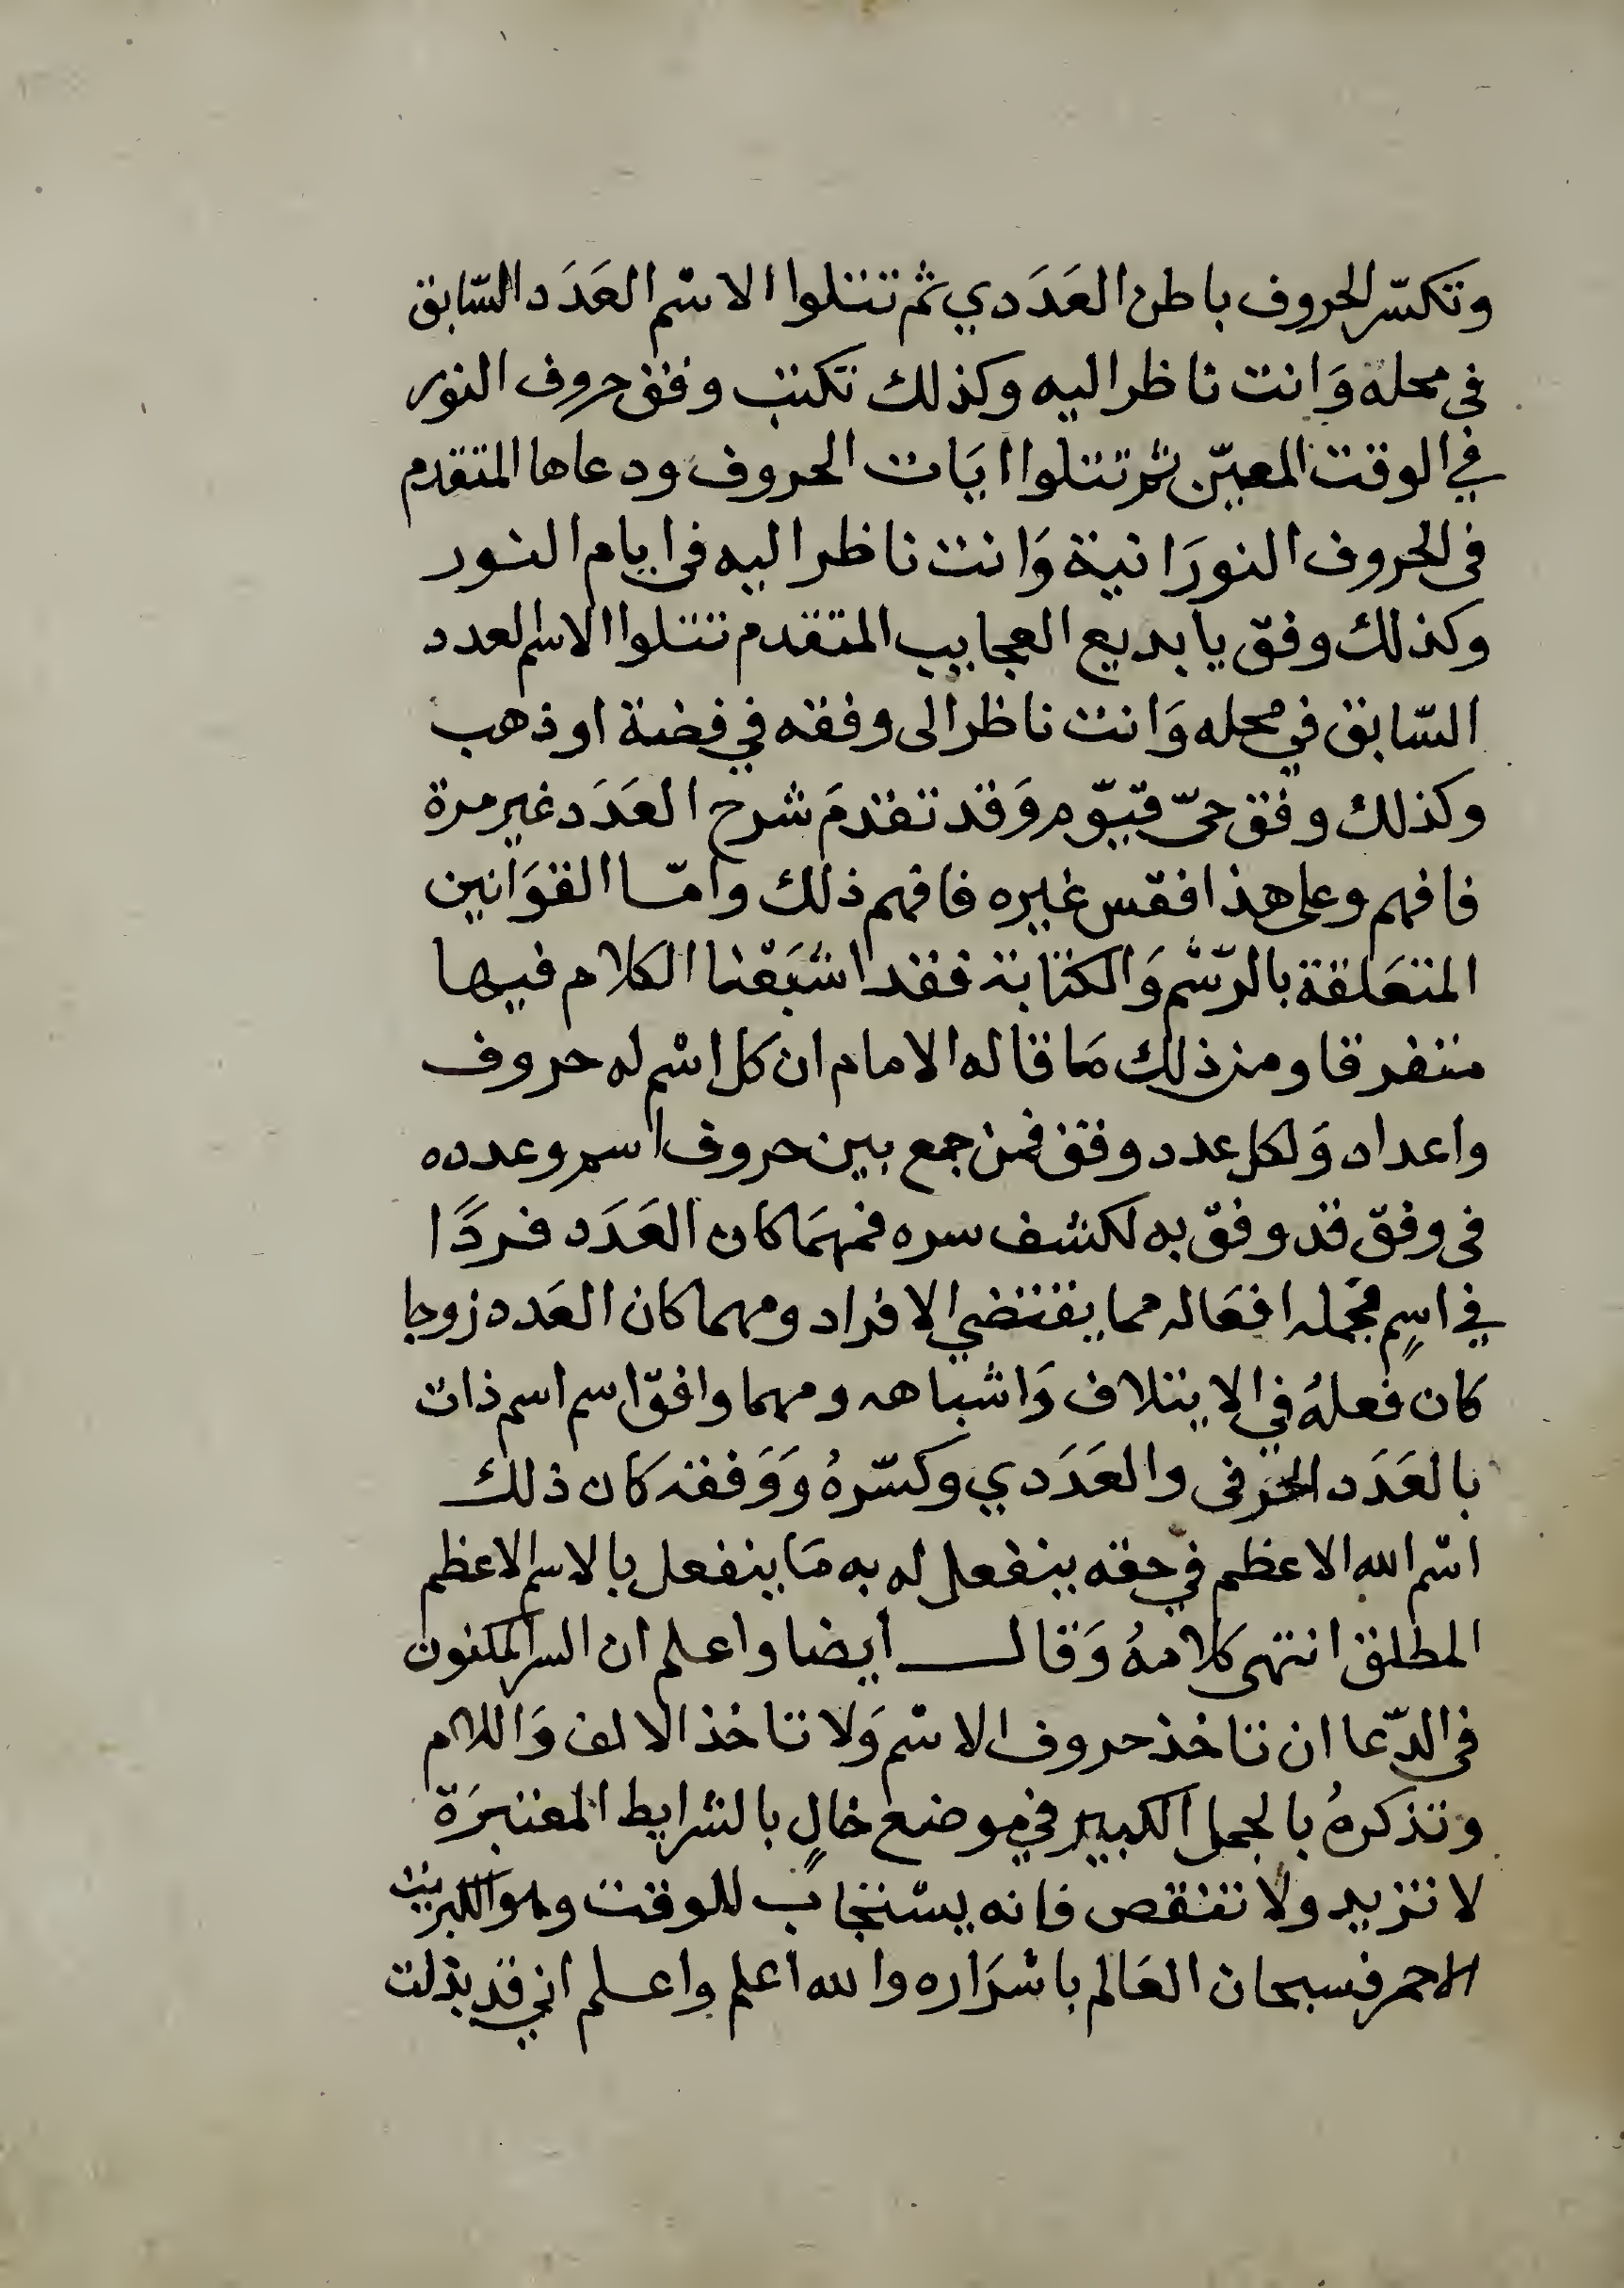 وتكسّر الحروف باطن العَدَدي ثم تتلوا الاسْم العَدَد السّابق
في محله وَانت ناظرا اليه وكذلك تكتب وفق حروف النور
في الوقت المعيّن ثم تتلوا ايَات الحروف ودعاها المتقدم
في الحروف النورَانية وَانت ناظرا اليه في ايام النور
وكذلك وفق يا بديع العجايب المتقدم تتلوا الاسم لعدد
السّابق في محله وَانت ناظر الى وفقه في فضة او ذهب
وكذلك وفق حىّ قيّوم وَقد تقدمَ شرح العَدَد غير مرة
فافهم وعلى هذا فقس غيره فافهم ذلك وامّا القوَانين
المتعَلقة بالرّسْم وَالكتابة فقد اشبَعْنا الكلام فيها
متفرقا ومن ذلك مَا قاله الامام ان كل اسْم له حروف
واعداد وَلكل عدد وفق فمن جمع بين حروف اسم وعدده
في وفق قد وفق به لكشف سره فمهمَا كان العَدَد فردًا
في اسمٍ فجمله افعَاله مما يقتضي الافراد ومهما كان العَدد زوجا
كان فعلهُ في الايتلاف وَاشباهه ومهما وافق اسم اسم ذات
بالعَدَد الحرفى والعَدَدي وكسّرهُ وَوَفقه كَان ذلك
اسْم الله الاعظم في حقه ينفعل له به مَا ينفعل بالاسم الاعظم
المطلق انتهى كلامهُ وَقال ايضا واعلم ان السر المكنون
في الدّعا ان تاخذ حروف الاسْم وَلا تاخذ الالف وَاللام
وتذكرهُ بالجمل الكبير في موضع خالٍ بالشرايط المعتبرَة
لا تزيد ولا تنقص فانه يسْتجاب للوقت وهو الكبريت
الاحمر فسبحان العَالم باسْرَاره والله اعلم واعلم اني قد بذلت